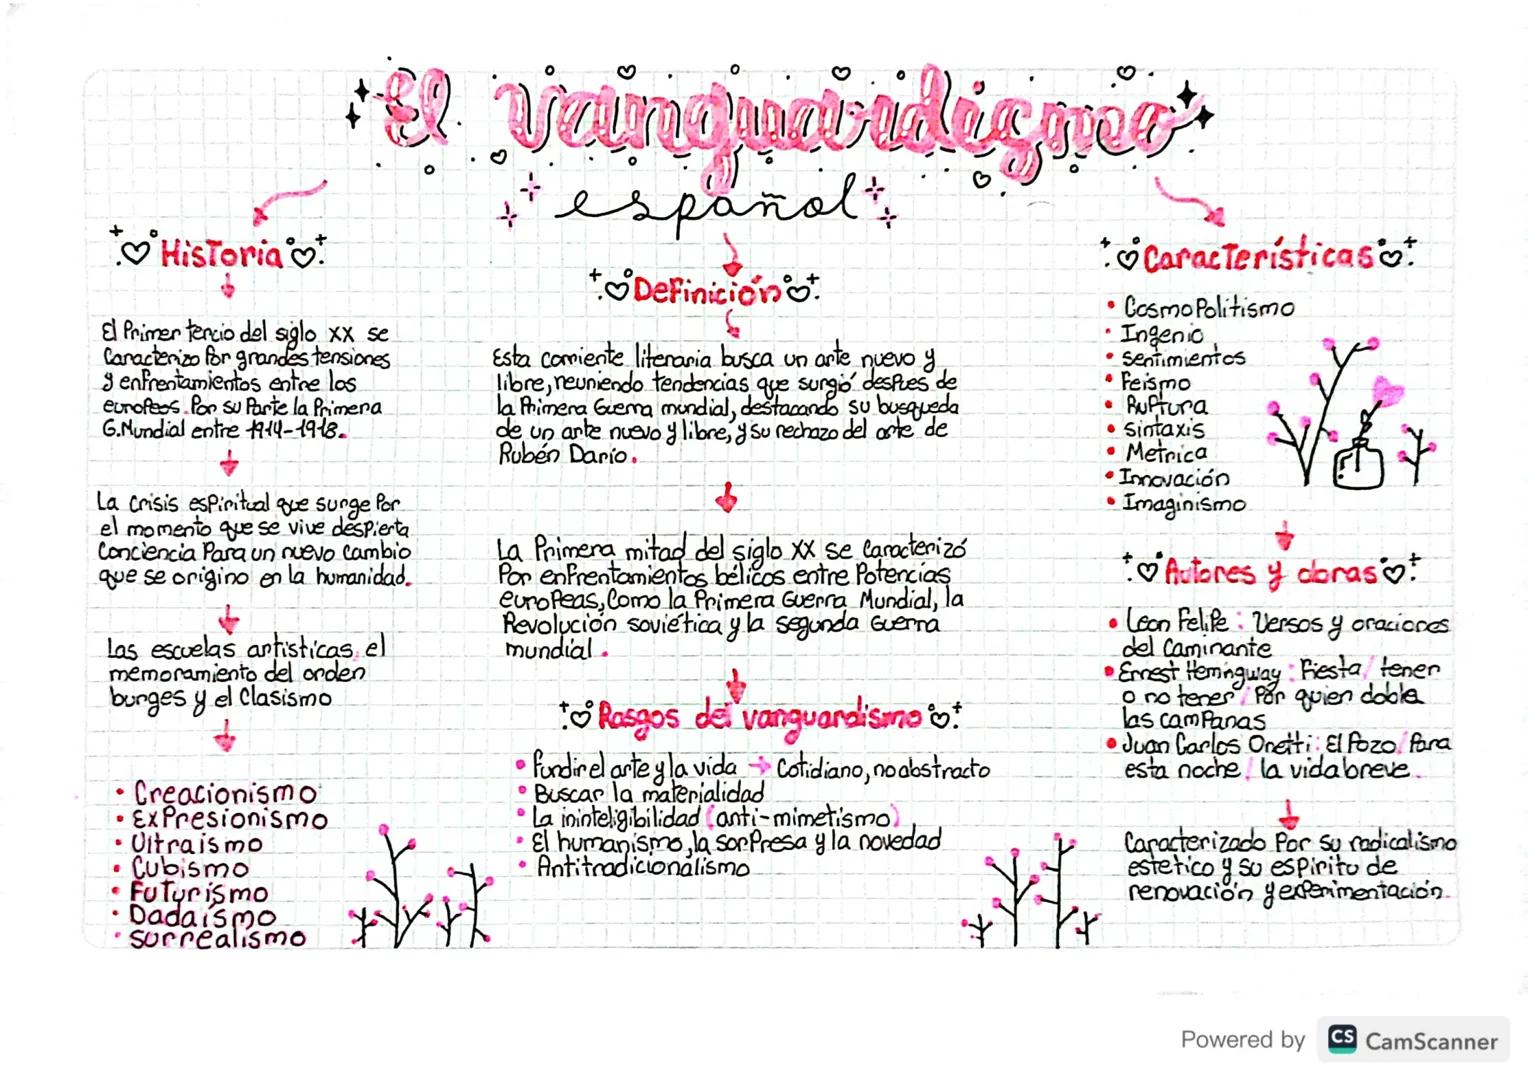 El vanguardismo
español
Historia
El Primer tercio del siglo XX se
Caracterizo Por grandes tensiones
y enfrentamientos entre los
europeos. Por su Parte la Primera
G.Mundial entre 1914-1918.
La crisis espiritual que surge Por
el momento que se vive despierta
Conciencia Para un nuevo cambio
que se origino en la humanidad.
Las escuelas artisticas, el
memoramiento del orden
burges y el Clasismo
• Creacionismo
• ExPresionismo
• Ultraismo
• Cubismo
• Futurismo
• Dadaísmo
• surrealismo
Definición
Esta corriente literaria busca un arte nuevo y
libre, reuniendo tendencias que surgió despues de
la Primera Guerra mundial, destacando su busqueda
de un arte nuevo y libre, y su rechazo del arte de
Rubén Dario.
La Primera mitad del siglo XX se Caracterizó
Por enfrentamientos bélicos entre Potencias
euroPeas, Como la Primera Guerra Mundial, la
Revolución soviética y la segunda Guerra
mundial.
Rasgos del vanguardismo
• Fundir el arte y la vida → Cotidiano, no abstracto
• Buscar la materialidad
• La ininteligibilidad (anti-mimetismo)
• El humanismo, la sorPresa y la novedad
• Antitradicionalismo
Características
• CosmoPolitismo
• Ingenio
• sentimientos
• Feismo
• Ruptura
• sintaxis
• Metrica
• Innovación
• Imaginismo
Autores y obras
• Leon Felipe: Versos y oraciones
del Caminante
• Ernest Hemingway: Fiesta/ tener
o no tener/ Por quien dobla
las camPanas
• Juan Carlos Onetti: El Pozo/ Para
esta noche/ la vida breve.
Caracterizado Por su radicalismo
estetico y su espiritu de
renovación y experimentación.
Powered by CS CamScanner